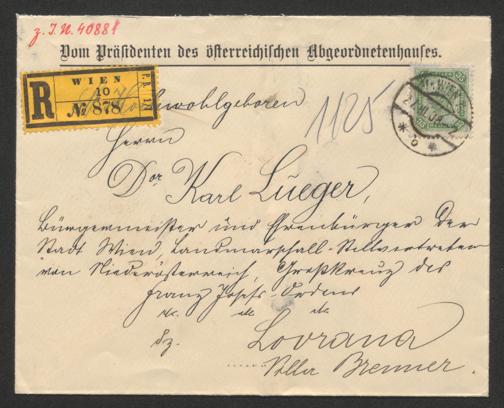 z. I. N. 40881
Vom Präsidenten des österreichischen Abgeordnetenhauses.
WIEN
10
R № 878
Hochwohlgeboren
1125
Herrn
Dor Karl Lueger,
Bürgermeister und Ehrenbürger der
Stadt Wien, Landmarschall-Stellvertreter
von Niederösterreich, Großkreuz des
Franz Josefs-Ordens
etc. etc. etc.
Lovrana
Villa Brenner.